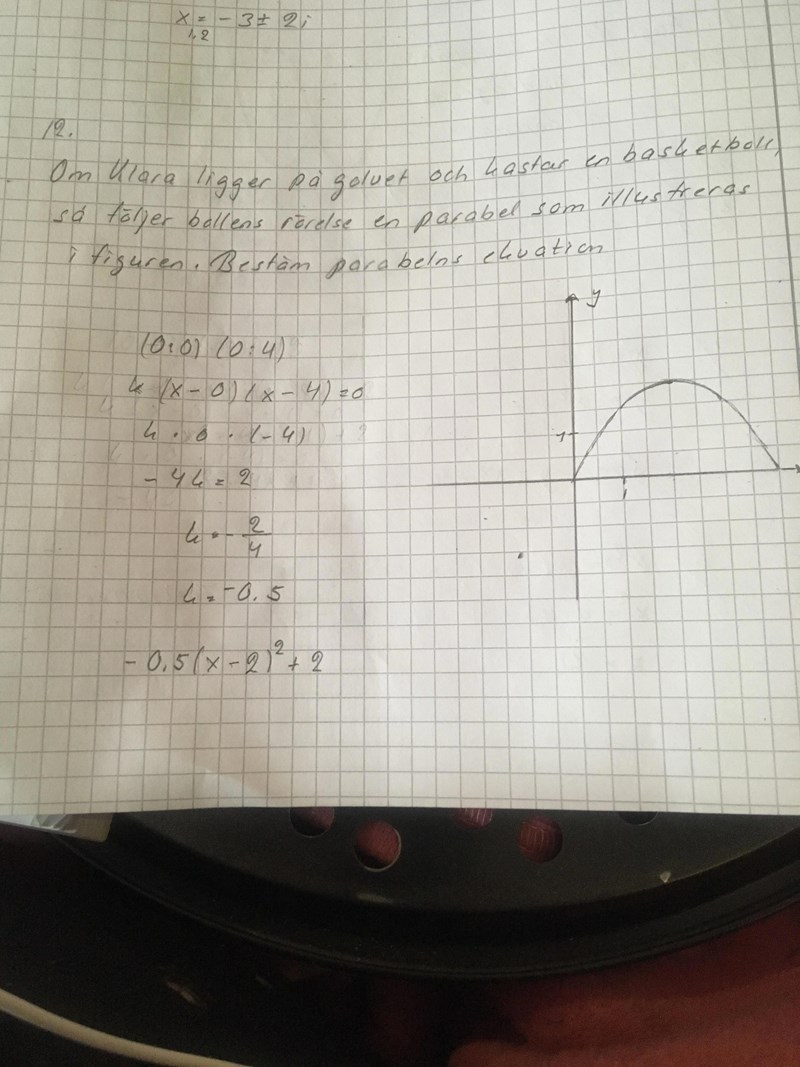 x = - 3 ± 2i
1,2
12.
Om Klara ligger på golvet och kastar en basketboll,
så följer bollens rörelse en parabel som illustreras
i figuren. Bestäm parabelns ekvation
y
(0;0) (0;4)
k (x - 0) (x - 4) = 0
k · 0 · (-4)
1
- 4k = 2
1
k = - 2/4
k = -0.5
- 0.5 (x - 2)² + 2